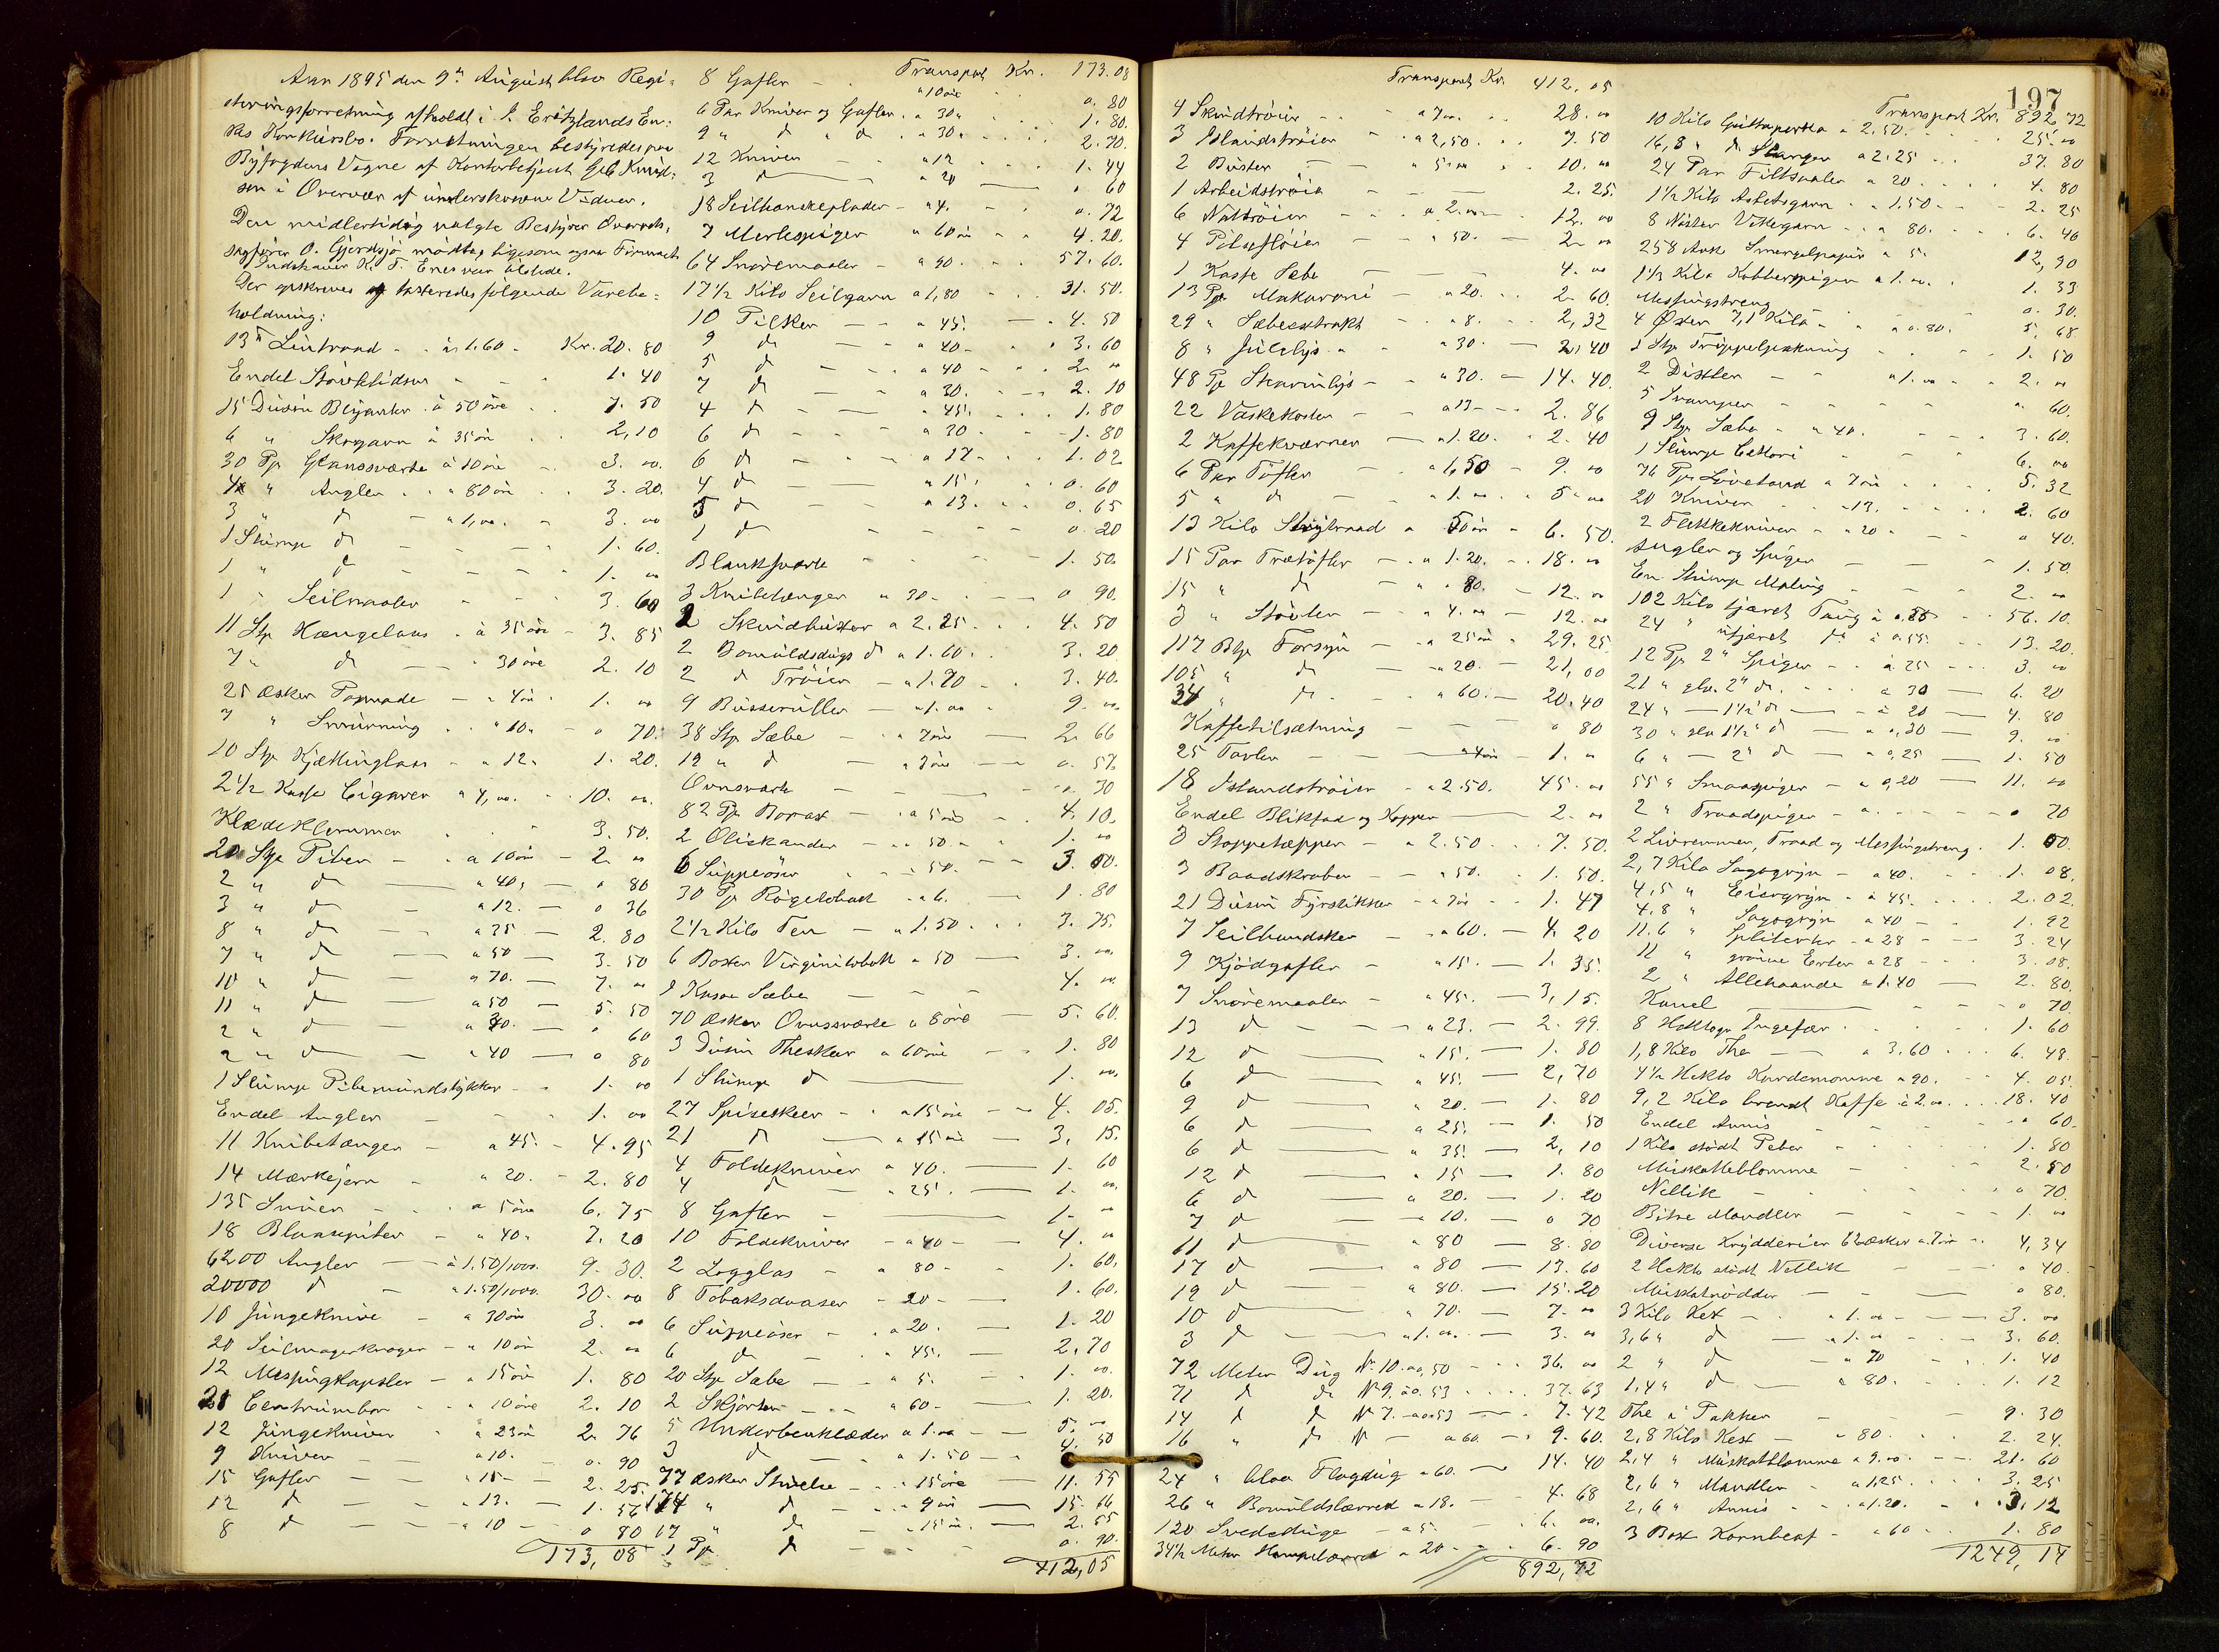 Aar 1895 den 9de August blev Regi=
steringsforretning afholdt i
kes Konkursbo. Forretningen bestyredes paa
Byfogdens Vegne af Kontorbetjent
sen i Overvær af underskrevne Vidner.
Den midlertidig valgte Bestyrer Overrets,
sagfører O. mødte, ligesom ogsaa Firmaets
Indehaver K. F. var tilstede.
Der opskreves og taxeredes følgende Varebe=
holdning:
13 - - à 1.60 - Kr. 20. 80
Endel - - 1. 40
15 Dusin Blyanter à 50 øre . . 7. 50
6 " Skogarn à 35 øre . . 2,10
30 Pr Glanssværte à 10 øre - 3. 00.
4 " Angler . . " 80 øre . . 3. 20.
3 " do - " 1,00. - 3. 00
1 Slump do - - - 1. 60.
1 " do - - - 1. 00
1 " Seilnaaler - - - 3. 60
11 Stk Hængelaas . à 35 øre - 3. 85
7 " do - - 30 øre 2. 10
25 Æsker Pomade - " 4 øre . 1. 00
7 " Smurning . . " 10. - 0 70.
10 Stk Kjættinglaas - " 12. 1. 20.
2 1/2 Kasse Cigarer " 4,00. - 10. 00.
Klædeklemmer . . . 3. 50.
20 Stk Piber - - a 10 øre - 2. 00
2 " do — " 40, — 0 80
3 " do — " 12. — 0 36
8 " do — " 35 — 2. 80
7 " do — " 50 — 3. 50
10 " do — " 70. — 7. 00
11 " do — " 50 — 5. 50
2 " do — " 30. — 0 60
2 " do — " 40 — 0 80
1 Slump Pibemundstykker - - 1. 00
Endel Angler - - - 1. 00
11 Knibetænger - a 45. - 4. 95
14 Mærkejern - " 20. - 2. 80
135 Snører - - - a 5 øre 6. 75
18 Blaasepiber - " 40. 7. 20
6200 Angler — à 1.50/1000. 9. 30.
20000 do - " 1.50/1000. 30. 00
10 Jungeknive - a 30 øre 3. 00
20 Seilmagerkroger - " 10 øre 2. 00
12 Messingkapsler - " 15 øre 1. 80
21 Centrumbor - " 10 øre 2. 10
12 Jungekniver - " 23 øre 2. 76
9 Kniver - - " 10. - 0. 90
15 Gafler - - " 15 - 2. 25.
12 do - - " 13. - 1. 56
8 do - - " 10 - 0 80
173, 08
Transport Kr. 173.08
8 Gafler - - " 10 øre 0. 80
6 Par Kniver og Gafler . a 30 " 1. 80.
9 " do " do . a 30. . . 2. 70.
12 Kniver - - " 12 . . 1. 44
3 do — " 20 — 0 60
18 Seilhanskeplader - " 4. - 0. 72
7 Merlespiger " 60 øre - 4. 20.
64 Snøremaaler - " 90. - 57. 60.
17 1/2 Kilo Seilgarn a 1,80 - . . 31. 50.
10 Pilker - - a 45. — 4. 50
9 do - - " 40 - . 3. 60
5 do - - " 40 - 2. 00
7 do - - " 30. - 2. 10
4 do - - " 45. . . 1. 80
6 do - - " 30 - - 1. 80
6 do - - a 17 - 1. 02
4 do - - " 15. . 0. 60
5 do - - " 13. . . 0. 65
1 do - - - - 0. 20
Blanksværte - - - 1. 50.
3 Knibetænger " 30 - - 0 90.
2 Skindbuxer a 2.25. . . 4. 50
2 Bomuldsdugs do a 1.60. . 3. 20
2 do Trøier - " 1.70 - . 3. 40.
9 Busseruller - " 1.00 - 9. 00
38 Stk Sæbe - - " 7 øre — 2. 66
19 " do — " 3 øre — 0. 57
Ovnsværte - - - - 0. 30
82 Pk Borax - . a 5 øre . . 4. 10.
2 Oliekander - . " 50 . . 1. 00
6 Suppeøser - - " 50. - - 3. 00.
30 Pk Røgetobak - " 6. - 1. 80
2 1/2 Kilo Teu - " 1.50 . . . 3. 75.
6 Boxer Virginitobak a 50 — 3. 00
1 Kasse Sæbe - - - 4. 00
70 Æsker Ovnssværte a 8 øre — 5. 60.
3 Dusin Theskeer a 60 øre - - 1. 80
1 Slump do — 1. 00
27 Spiseskeer - - a 15 øre - 4. 05.
21 do — a 15 øre — 3, 15.
4 Foldekniver a 40. — 1. 60
4 do — " 25. — 1. 00
8 Gafler - — 1. 00
10 Foldekniver - a 40 - - 4. 00
2 Logglas - " 80 - - 1. 60,
8 Tobaksdaaser - 20 - - 1. 60.
6 Suppeøser - . a 20. — 1. 20
6 do - - " 45. — 2. 70
20 Stk Sæbe - - a 5. - 1. 00
2 Skjorter - - - " 60 - - 1. 20.
5 Underbenklæder a 1.00 - - 5. 00
3 do - - a 1.50 - 4. 50
77 Æsker Stivelse - - 15 øre 11. 55
174 " do - - - 9 øre — 15. 66
17 " do - - 15 øre. — 2. 55
1 Pk do - - - 0. 90.
412,05
Transport Kr. 412,05
4 Skindtrøier - - a 7.00 . . 28. 00
3 Islandstrøier - a 2,50. . . 7. 50
2 Buxer - - " 5.00 - - 10. 00
1 Arbeidstrøie - - — 2. 25.
6 Nattrøier - - a 2.00 - 12. 00
4 - - " 50. — 2. 00
1 Kasse Sæbe — — 4. 00
13 Pk Makaroni - " 20. . . 2. 60.
29 " Sæbeextrakt - - " 8. . . 2,32
8 " Julelys - - " 30. - 2. 40
48 Pk Stearinlys - - " 30. — 14. 40.
22 Vaskekoster - - a 13 - - 2. 86
2 Kaffekværner — a 1.20. . 2. 40
6 Par Tøfler - . a 1,50 - 9. 00
5 " do - - a 1.00 . - 5. 00
13 Kilo Staaltraad a 50 øre - 6. 50.
15 Par Trætøfler - - a 1.20. . . 18. 00
15 " do - - " 80. — 12. 00
3 " Støvler - - " 4.00 — 12. 00
117 Forsyn - - a 25 øre " 29. 25
105 " do - a 20. — 21,00
34 " do - - " 60. — 20. 40
Kaffetilsætning - - - 0 80
25 Tavler - - — " 4 øre - 1. 00
18 Islandstrøier - a 2.50. 45. 00
Endel Blikfad og Kopper — 2. 00
3 Stoppetæpper - a 2.50 . . 7. 50.
3 Baadskraber - - " 50. - 1. 50.
21 Dusin Fyrstikker - a 7 øre - - 1. 47
7 Seilhandsker - - " 60. - 4. 20
9 Kjødgafler - - " 15. - 1. 35.
7 Snøremaaler - " 45. — 3,15.
13 do - - - " 23. - 2. 99.
12 do — " 15. — 1. 80
6 do — " 45. — 2,70
9 do — " 20. — 1. 80
6 do — " 25. — 1. 50
6 do — " 35. — 2,10
12 do — " 15 — 1. 80
6 do — " 20. — 1. 20
7 do — " 10. — 0 70
11 do — " 80 — 8. 80
17 do — " 80 — 13. 60
19 do — " 80. — 15. 20
10 do — " 70. — 7. 00
3 do — " 1.00. — 3. 00
72 Meter Dug No 10. a 0,50 - - - 36. 00
71 do do No 9. a 0.53 . . . 37. 63
14 do do No 7. a 0.53 — 7. 42
16 " do No - a 60. - 9. 60.
24 " blaa Flagdug a 60. — 14. 40
26 " Bomuldslærred a 18. — 4. 68
120 Svededuge - a 5. - 6. 00.
34 1/2 Meter Hampelærred a 20 - - 6. 90
892,72
197
Transport Kr. 892,72
10 Kilo Guttaperka a 2.50. . . 25. 00
16,8 " do Slanger a 2.25 . . . 37. 80
24 Par Filtsaaler a 20. . . . 4. 80
1 1/2 Kilo Asbetsgarn . a 1.50 - - 2. 25
8 Nøster Vattergarn - - a 80. - - 6. 40
258 Ark Smergelpapir a 5. 12,90
1 1/2 Kilo Kobberspiger a 1.00. . 1. 33
Messingstreng - - - 0. 30.
4 Øxer 7,1 Kilo - - " 0.80. 5. 68
1 Stk Trippelpakning - - - 1. 50
2 Distler - - " 1.00 - - 2. 00
5 Svamper - - - - " 60.
9 Stk Sæbe - - " 40. - - 3. 60.
1 Slump - - 6. 00
76 Pk Løvetand a 7 øre . . . 5. 32
20 Kniver . . - 13. . . . 2. 60
2 Flekkekniver - " 20 - - 0 40.
Angler og Spiger - - - 1. 50.
En Slump Maling - - - 2. 00
102 Kilo tjæret Taug à 0.55 . . 56. 10.
24 " utjæret do à 0.55. . . 13. 20.
12 Pk 2" Spiger - - à 25 - - 3. 00
21 " glv. 2" do. . . . à 30 — 6. 20
24 " — 1 1/2" do — à 20 — 4. 80
30 " glv 1 1/2" do — " 0,30 — 9. 00
6 " — 2" do — " 0,25 — 1. 50
55 " Smaaspiger - a 0,20 — 11. 00
2 " Traadspiger - a - - - 0 70
2 Livremmer, Traad og Messingstreng . 1. 00.
2,7 Kilo Sagogryn - a 40. - - 1. 08.
4,5 " Eisogryn - à 45. . . . 2. 02.
4.8 " Sagogryn a 40 - - 1. 92
11.6 " Spliterter - a 28 - - - 3. 24
11 " grønne Erter a 28 - - 3. 08.
2 " Allehaande a 1.40 — 2. 80.
Kanel — - - 0 70.
8 Hektogr Ingefær - . . . 1. 60
1,8 Kilo The - - a 3.60 . . . 6. 48.
4 1/2 Hekto Kardemomme a 90. . 4. 05.
9,2 Kilo brændt Kaffe à 2.00. . . . 18. 40
Endel Annis - - - - 0 60.
1 Kilo stødt Peber - - - 1. 80
Muskatteblomme - - - 2. 50
Nellik - - - - 0 70.
Bitre Mandler - - - 1. 00
Diverse Krydderier 62 Æsker a 7 øre . . 4,34
2 Hekto stødt Nellik - - - 0 40.
Muskatnødder - - — 0 80.
3 Kilo Kex - . a 1.00 - — 3. 00
3,6 " do - a 1.00 - - 3. 60.
2 " do - a 70 - 1. 40
1,4 " do — a 80. - - 1. 12
The i Pakker - - - 9. 30
2,8 Kilo Kex - - 80. . . 2. 24.
2,4 " Muskatblomme a 9.00. - - 21. 60
2,6 " Mandler - a 1.25 . . . 3. 25
2,6 " Annis - - . a 1.20. - 3. 12
3 Box Kornbeaf - " 60 . . 1. 80
1249, 14